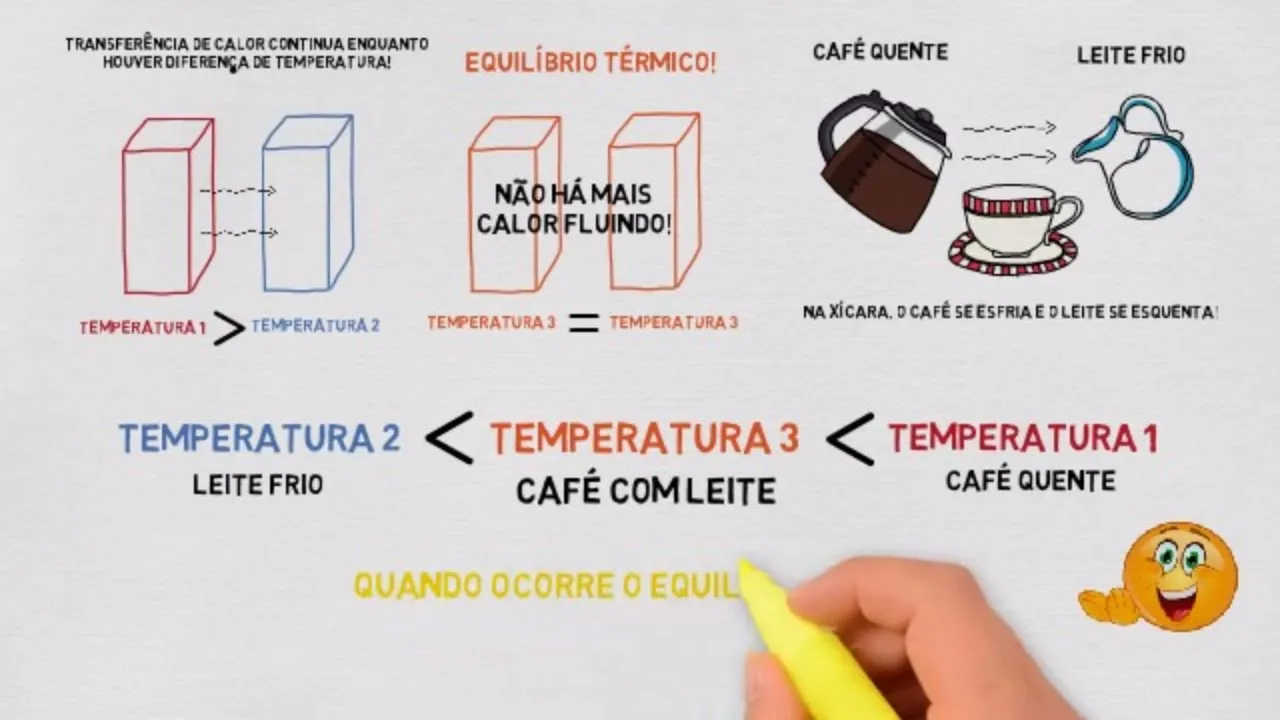 TRANSFERÊNCIA DE CALOR CONTINUA ENQUANTO
HOUVER DIFERENÇA DE TEMPERATURA!
TEMPERATURA 1 > TEMPERATURA 2
EQUILÍBRIO TÉRMICO!
NÃO HÁ MAIS
CALOR FLUINDO!
TEMPERATURA 3 = TEMPERATURA 3
CAFÉ QUENTE
LEITE FRIO
NA XÍCARA, O CAFÉ SE ESFRIA E O LEITE SE ESQUENTA!
TEMPERATURA 2 < TEMPERATURA 3 < TEMPERATURA 1
LEITE FRIO
CAFÉ COM LEITE
CAFÉ QUENTE
QUANDO OCORRE O EQUIL